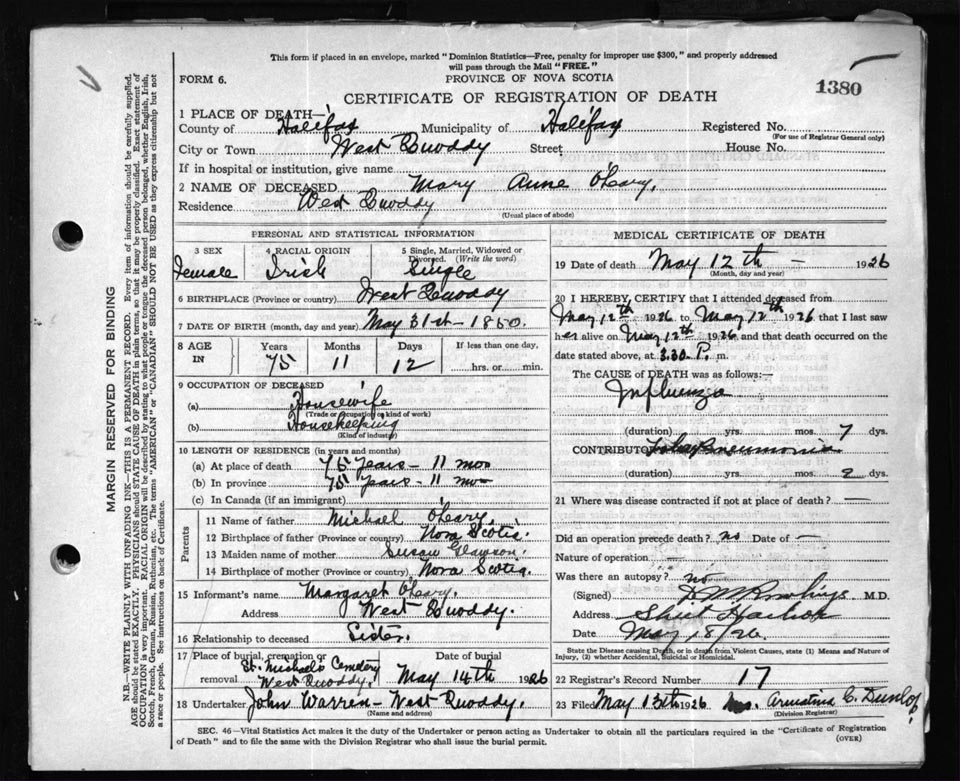 This form if placed in an envelope, marked "Dominion Statistics—Free, penalty for improper use $300," and properly addressed
will pass through the Mail "FREE."
FORM 6.
PROVINCE OF NOVA SCOTIA
1380
CERTIFICATE OF REGISTRATION OF DEATH
1 PLACE OF DEATH—
County of Halifax Municipality of Halifax Registered No.
(For use of Registrar General only)
City or Town West Quoddy Street House No.
If in hospital or institution, give name
2 NAME OF DECEASED Mary Anne O'Leary.
Residence West Quoddy
(Usual place of abode)
PERSONAL AND STATISTICAL INFORMATION
3 SEX 4 RACIAL ORIGIN 5 Single, Married, Widowed or
Divorced. (Write the word)
Female Irish Single
6 BIRTHPLACE (Province or country) West Quoddy
7 DATE OF BIRTH (month, day and year) May 31st - 1850.
8 AGE IN Years Months Days If less than one day,
75 11 12 hrs. or min.
9 OCCUPATION OF DECEASED
(a) Housewife
(Trade or occupation or kind of work)
(b) Housekeeping
(Kind of industry)
10 LENGTH OF RESIDENCE (in years and months)
(a) At place of death 75 years - 11 mos
(b) In province 75 years - 11 mos
(c) In Canada (if an immigrant)
Parents
11 Name of father Michael O'Leary.
12 Birthplace of father (Province or country) Nova Scotia.
13 Maiden name of mother Susan
14 Birthplace of mother (Province or country) Nova Scotia.
15 Informant's name Margaret O'Leary.
Address West Quoddy.
16 Relationship to deceased Sister.
17 Place of burial, cremation or removal Date of burial
St. Michaels Cemetery
West Quoddy. May 14th 1926
18 Undertaker John Warren - West Quoddy.
(Name and address)
MEDICAL CERTIFICATE OF DEATH
19 Date of death May 12th - 1926
(Month, day and year)
20 I HEREBY CERTIFY that I attended deceased from
May 12th 1926 to May 12th 1926 that I last saw
her alive on May 12th 1926 and that death occurred on the
date stated above, at 3.30 P. m.
The CAUSE of DEATH was as follows:—
Influenza
(duration) yrs. mos. 7 dys.
CONTRIBUTORY Pneumonia
(duration) yrs. mos. 2 dys.
21 Where was disease contracted if not at place of death? —
Did an operation precede death? no Date of —
Nature of operation —
Was there an autopsy? no
(Signed) M.D.
Address Sheet Harbor
Date May 18/26.
State the Disease causing Death, or in death from Violent Causes, state (1) Means and Nature of
Injury, (2) whether Accidental, Suicidal or Homicidal.
22 Registrar's Record Number 17
23 Filed May 13th 1926 C. Dunlop.
(Division Registrar)
SEC. 46—Vital Statistics Act makes it the duty of the Undertaker or person acting as Undertaker to obtain all the particulars required in the "Certificate of Registration
of Death" and to file the same with the Division Registrar who shall issue the burial permit.
(OVER)
MARGIN RESERVED FOR BINDING
N.B.—WRITE PLAINLY WITH UNFADING INK—THIS IS A PERMANENT RECORD. Every item of information should be carefully supplied.
AGE should be stated EXACTLY. PHYSICIANS should STATE CAUSE OF DEATH in plain terms, so that it may be properly classified. Exact statement of
OCCUPATION is very important. RACIAL ORIGIN will be described by stating to what people or tongue the deceased person belonged, whether English, Irish,
Scotch, French, German, Russian, Ruthenian, etc. The terms "AMERICAN" or "CANADIAN" SHOULD NOT BE USED as they express citizenship but not
a race or people. See instructions on back of Certificate.